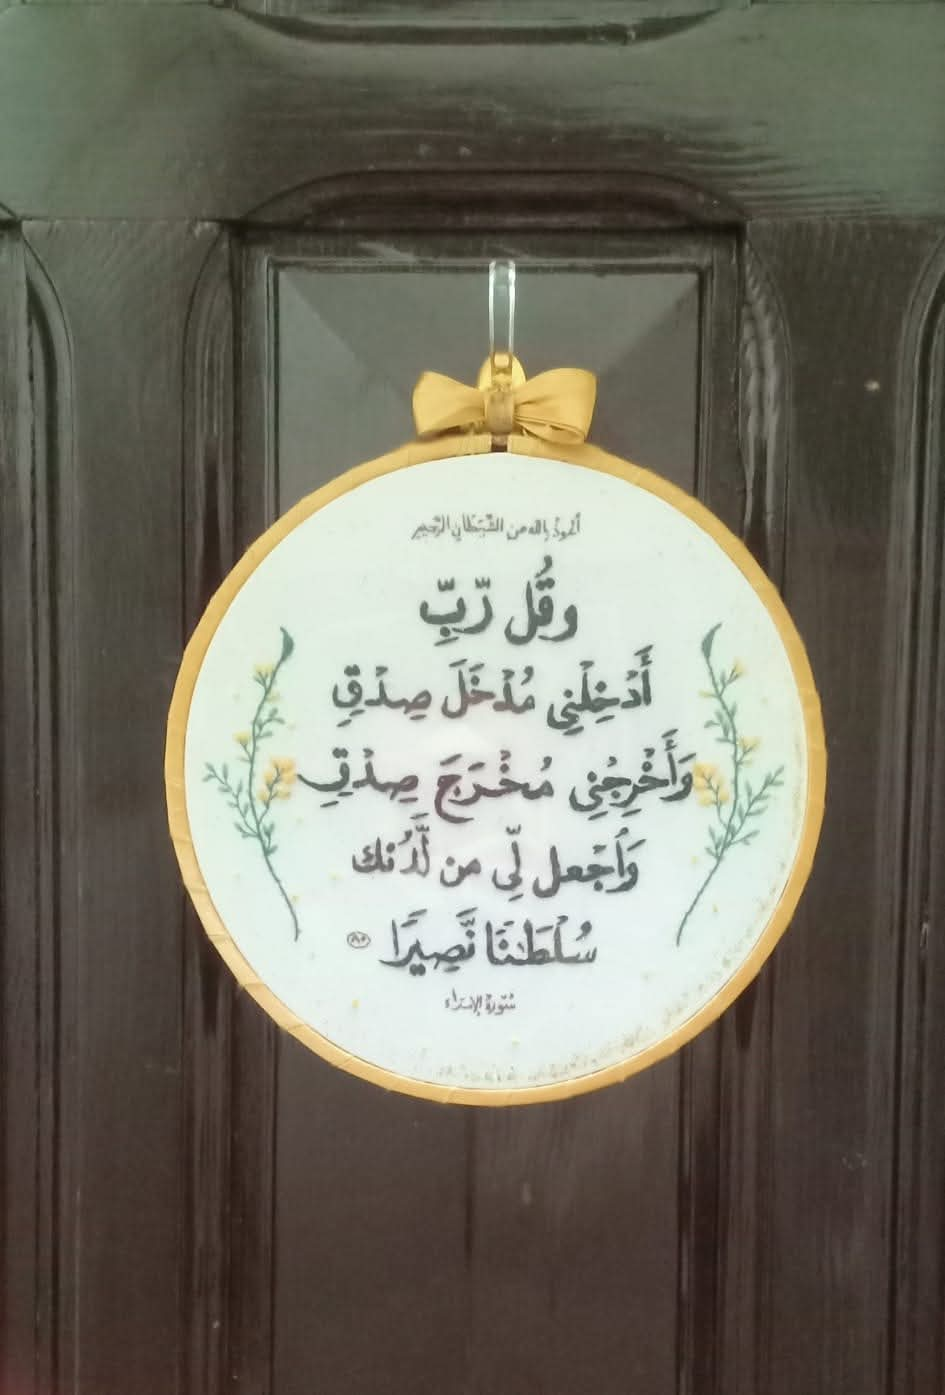 أعوذ بالله من الشَّيْطَانِ الرَّجِيمِ
وقُل رَّبِّ
أَدْخِلْنِي مُدْخَلَ صِدْقٍ
وَأَخْرِجْنِي مُخْرَجَ صِدْقٍ
وَاجْعل لِّي من لَّدُنك
سُلْطَـٰنًا نَّصِيرًا ٨٠
سُورَة الإسراء